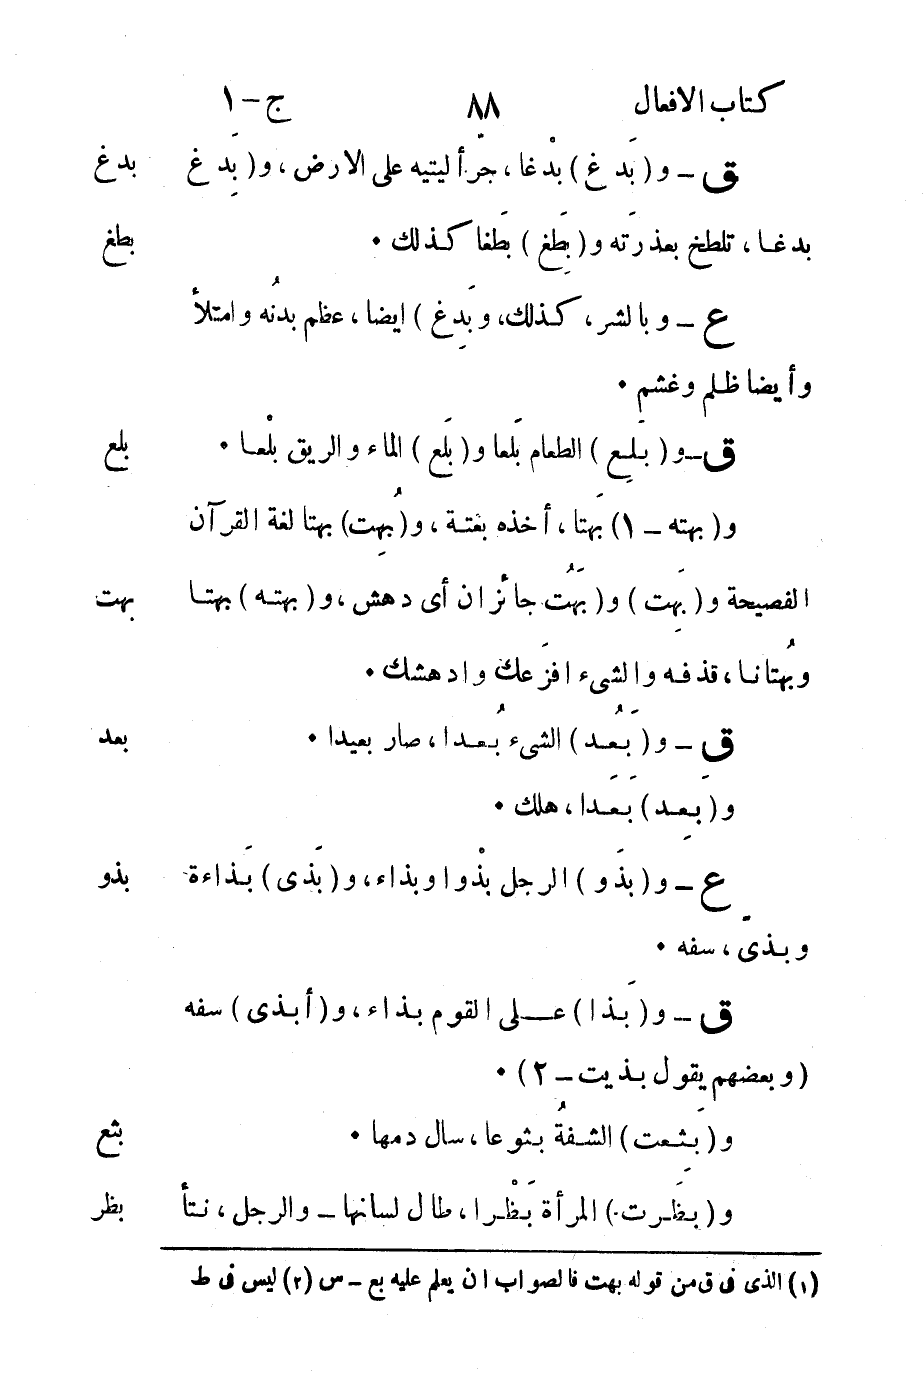 كتاب الافعال ٨٨ ج-١
ق - و (بَدَغ) بدْغا، جرّ أليتيه على الارض، و (بَدِ غ بدغ
بدغا، تلطخ بعذرته و (بَطِغ) بَطَغا كذلك • بطغ
ع - وبالشر، كذلك، و بَدِغ) ايضا، عظم بدنُه وامتلأ
وأيضا ظلم وغشم •
ق - و (بَلِع) الطعام بَلعا و (بَلَع) الماء والريق بلْعا • بلع
و (بهته - ١) بَهتا، أخذه بغتة، و (بُهِت) بهتا لغة القرآن
الفصيحة و (بَهِت) و (بَهُت جائزان أى دهش، و (بهته) بهتا بهت
وبُهتانا، قذفه والشىء افزَعك وادهشك •
ق - و (بَعُد) الشىء بُعدا، صار بعيدا • بعد
و (بَعِد) بَعَدا، هلك •
ع - و (بذَو) الرجل بذْوا وبذاء، و (بَذى) بَذاءة بذو
وبذى، سفه •
ق - و (بَذا) على القوم بذاء، و (أبذى) سفه
(وبعضهم يقول بذيت - ٢) •
و (بَثِعت) الشفةُ بثوعا، سال دمها • بثع
و (بظَرت) المرأة بَظْرا، طال لسانها - والرجل، نتأ بظر
(١) الذى فى ق من قوله بهت فالصواب ان يعلم عليه بع - س (٢) ليس فى ط